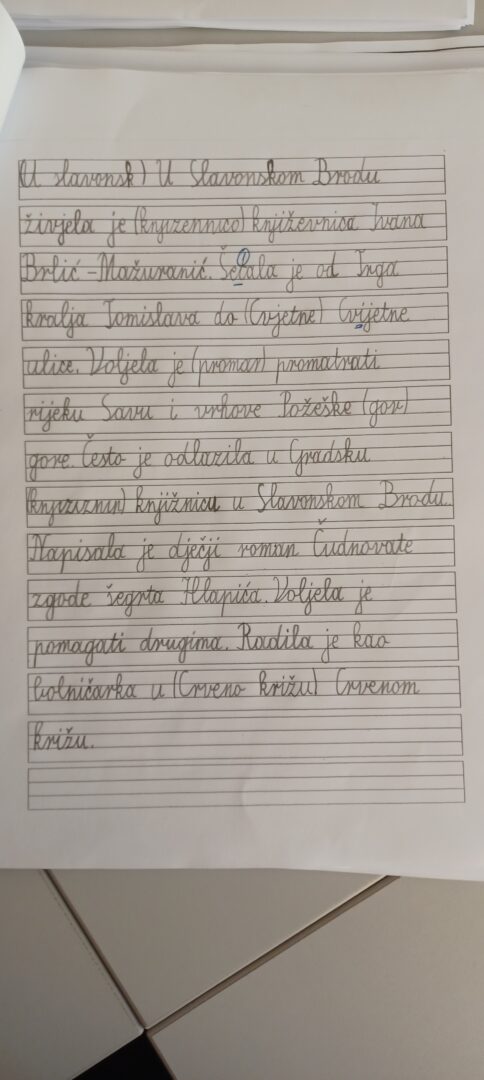 (U slavonsk) U Slavonskom Brodu
živjela je (knjizennico) književnica Ivana
Brlić-Mažuranić. Šetala je od Trga
kralja Tomislava do (Cvjetne) Cvijetne
ulice. Voljela je (proman) promatrati
rijeku Savu i vrhove Požeške (gor)
gore. Često je odlazila u Gradsku
knjižnicu u Slavonskom Brodu.
Napisala je dječji roman Čudnovate
zgode šegrta Hlapića. Voljela je
pomagati drugima. Radila je kao
bolničarka u (Crveno križu) Crvenom
križu.